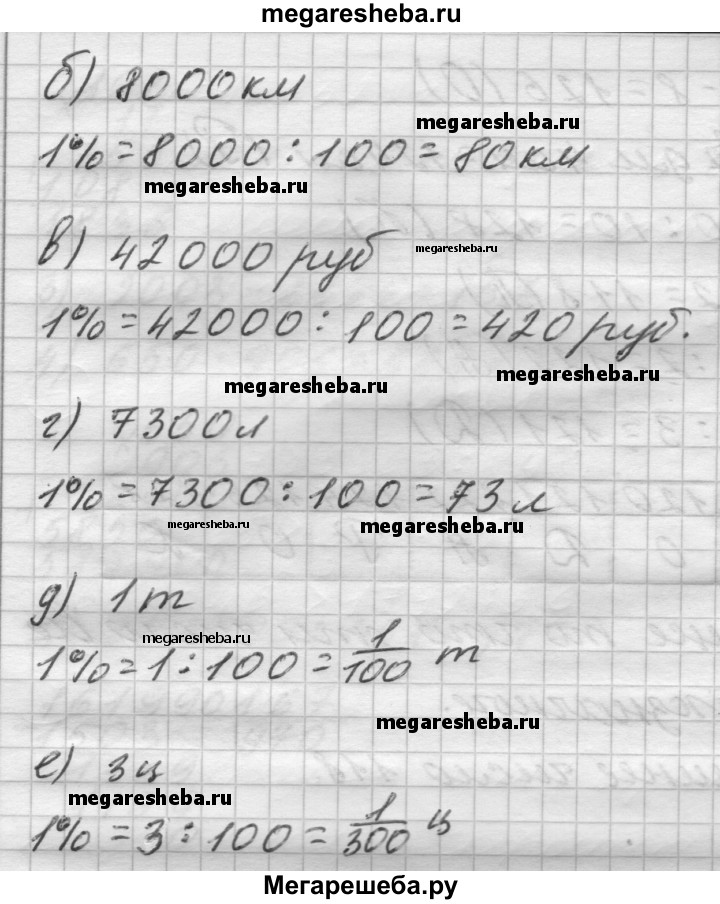 megaresheba.ru
б) 8000 км
megaresheba.ru
1% = 8000 : 100 = 80 км
megaresheba.ru
в) 42000 руб
megaresheba.ru
1% = 42000 : 100 = 420 руб.
megaresheba.ru
megaresheba.ru
г) 7300 л
1% = 7300 : 100 = 73 л
megaresheba.ru
megaresheba.ru
д) 1 т
megaresheba.ru
1% = 1 : 100 = 1/100 т
megaresheba.ru
е) 3 ц
megaresheba.ru
1% = 3 : 100 = 1/300 ц
Мегарешеба.ру